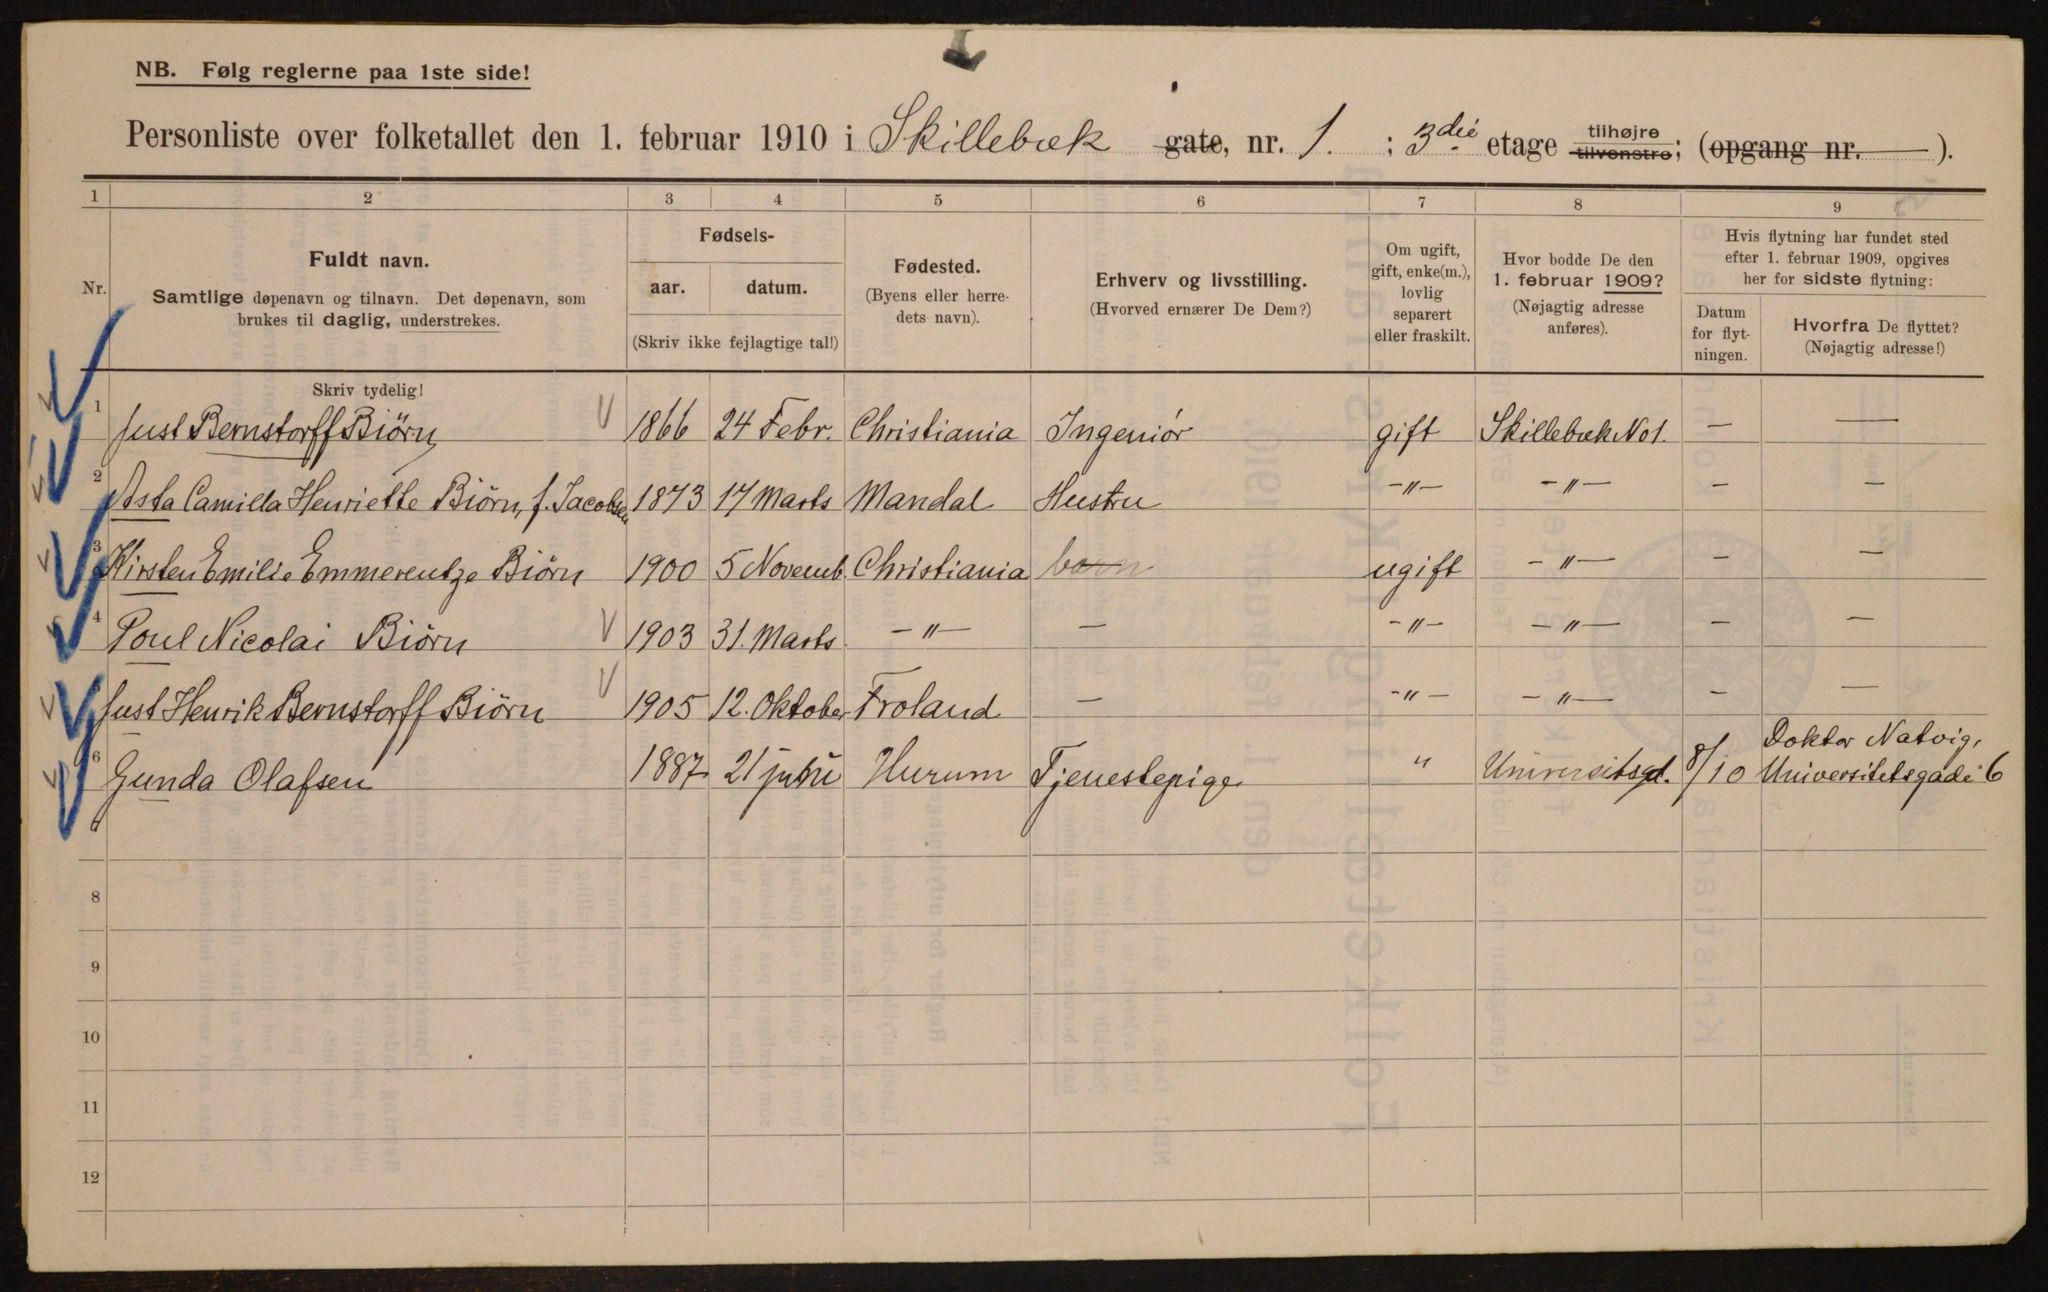 NB. Følg reglerne paa 1ste side!
Personliste over folketallet den 1. februar 1910 i Skillebæk gate, nr. 1. ; 3die etage tilhøjre tilvenstre; (opgang nr. — ).
1 2 3 4 5 6 7 8 9
Nr.
Fuldt navn.
Samtlige døpenavn og tilnavn. Det døpenavn, som
brukes til daglig, understrekes.
Fødsels-
aar. datum.
(Skriv ikke fejlagtige tal!)
Fødested.
(Byens eller herre-
dets navn).
Erhverv og livsstilling.
(Hvorved ernærer De Dem?)
Om ugift,
gift, enke(m.),
lovlig
separert
eller fraskilt.
Hvor bodde De den
1. februar 1909?
(Nøjagtig adresse
anføres).
Hvis flytning har fundet sted
efter 1. februar 1909, opgives
her for sidste flytning:
Datum
for flyt-
ningen.
Hvorfra De flyttet?
(Nøjagtig adresse!)
Skriv tydelig!
1 Just Bernstorff Biörn 1866 24 Febr. Christiania Ingeniór gift Skillebæk No 1. — —
2 Asta Camilla Henriette Biörn, f. Jacobsen 1873 17 Marts Mandal Hustru -"- -"- — —
3 Kirsten Emilie Emmerentze Biörn 1900 5 Novemb. Christiania barn ugift -"- — —
4 Poul Nicolai Biörn 1903 31. Marts -"- — -"- -"- — —
Just Henrik Bernstorff Biörn 1905 12. Oktober Froland — -"- -"- — —
6 Gunda Olafsen 1887 21 juni Hurum Tjenestepige " Universitsgd. 8/10 Doktor Natvig,
Universitetsgade 6
8
9
10
11
12